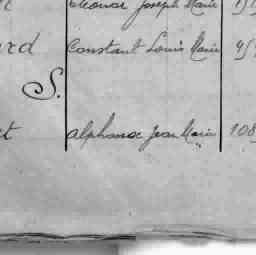 Eléonor Joseph Marie
ard Constant Louis Marie 95
S.
et Alphonse Jean Marie 108